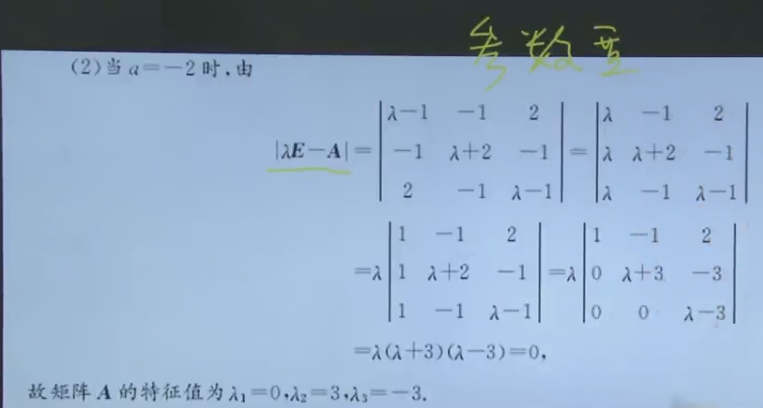 参数型
(2)当 a=-2 时,由
|λE-A|= |λ-1 -1 2; -1 λ+2 -1; 2 -1 λ-1| = |λ -1 2; λ λ+2 -1; λ -1 λ-1|
=λ |1 -1 2; 1 λ+2 -1; 1 -1 λ-1| =λ |1 -1 2; 0 λ+3 -3; 0 0 λ-3|
=λ(λ+3)(λ-3)=0,
故矩阵 A 的特征值为 λ₁=0,λ₂=3,λ₃=-3.